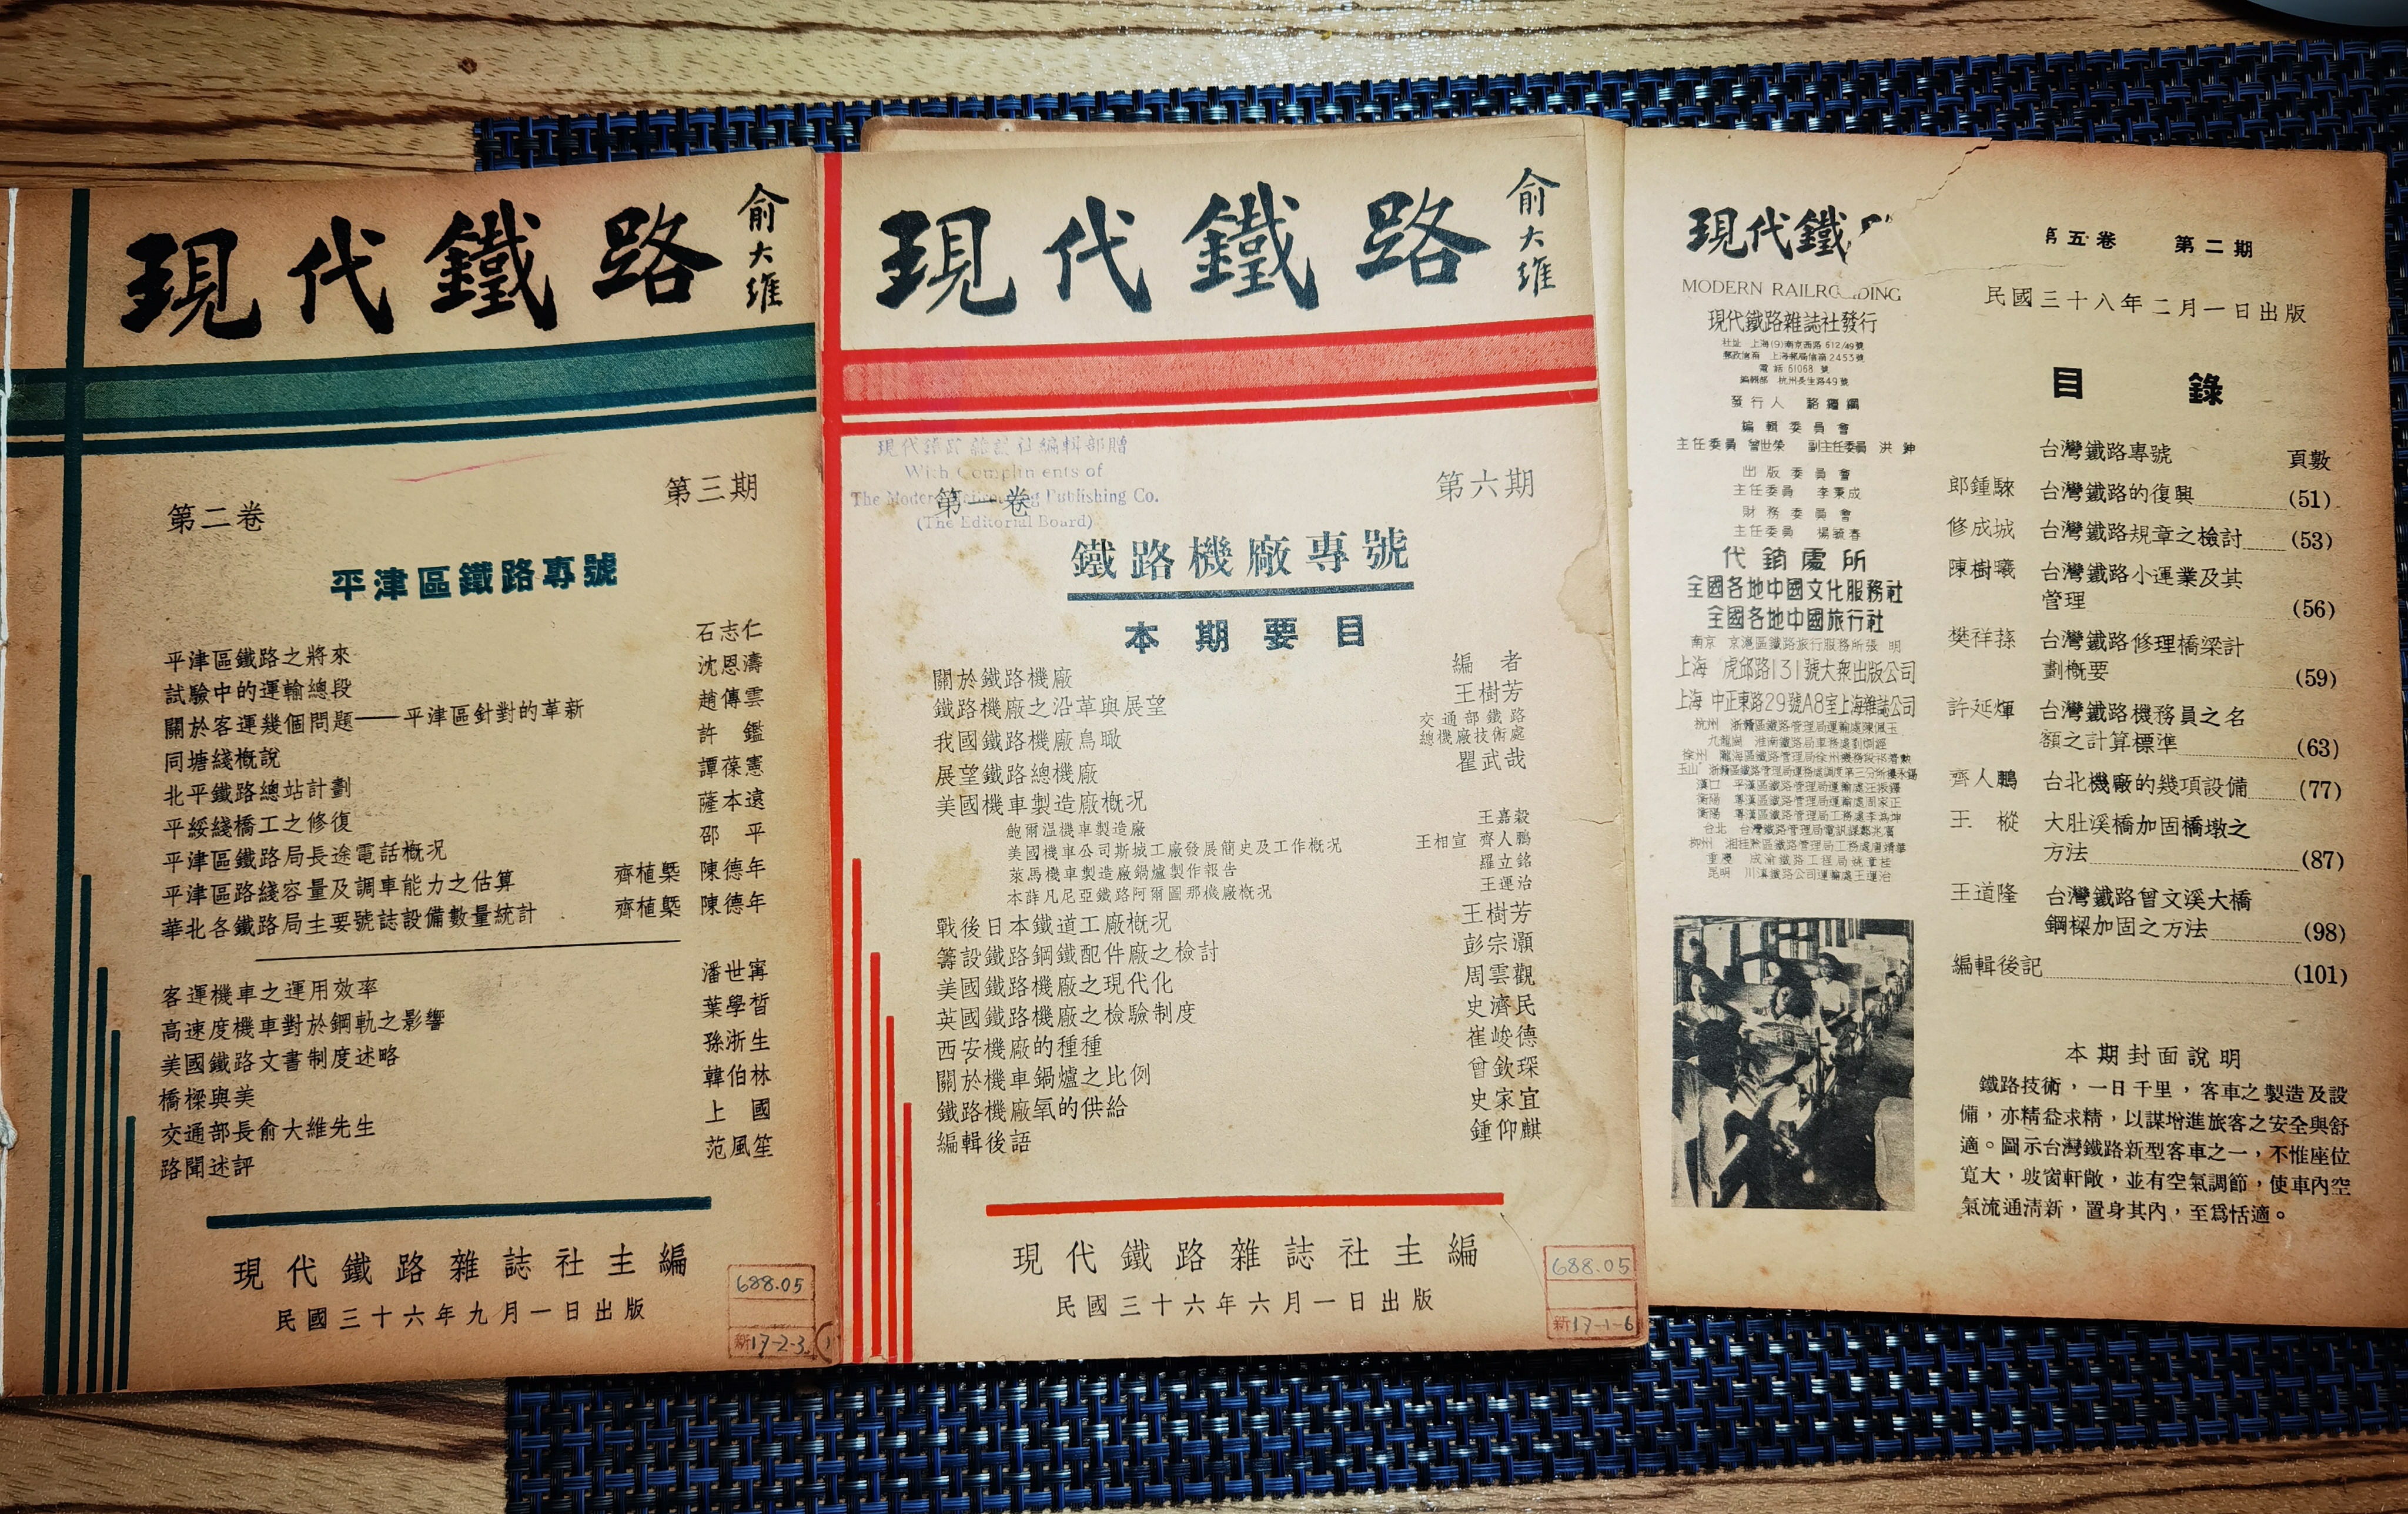 現代鐵路
俞大維
第二卷
第三期
平津區鐵路專號
平津區鐵路之將來 石志仁
試驗中的運輸總段 沈恩濤
關於客運幾個問題——平津區針對的革新 趙傳雲
同塘綫概說 許 鑑
北平鐵路總站計劃 譚葆憲
平綏綫橋工之修復 薩本遠
平津區鐵路局長途電話概况 邵 平
平津區路綫容量及調車能力之估算 齊植檠 陳德年
華北各鐵路局主要號誌設備數量統計 齊植檠 陳德年
客運機車之運用效率 潘世甯
高速度機車對於鋼軌之影響 葉學晳
美國鐵路文書制度述略 孫浙生
橋樑與美 韓伯林
交通部長俞大維先生 上 國
路聞述評 范風笙
現代鐵路雜誌社主編
民國三十六年九月一日出版
688.05
新17-2-3
現代鐵路
俞大維
現代鐵路雜誌社編輯部贈
With Compliments of
The Modern Railroading Publishing Co.
(The Editorial Board)
第一卷
第六期
鐵路機廠專號
本期要目
關於鐵路機廠 編 者
鐵路機廠之沿革與展望 王樹芳
我國鐵路機廠鳥瞰 交通部鐵路總機廠技術處
展望鐵路總機廠 瞿武哉
美國機車製造廠概况
鮑爾温機車製造廠 王嘉穀
美國機車公司斯城工廠發展簡史及工作概况 王相宣 齊人鵬
萊馬機車製造廠鍋爐製作報告 羅立銘
本薛凡尼亞鐵路阿爾圖那機廠概况 王運治
戰後日本鐵道工廠概况 王樹芳
籌設鐵路鋼鐵配件廠之檢討 彭宗灝
美國鐵路機廠之現代化 周雲觀
英國鐵路機廠之檢驗制度 史濟民
西安機廠的種種 崔峻德
關於機車鍋爐之比例 曾欽琛
鐵路機廠氧的供給 史家宜
編輯後語 鍾仰麒
現代鐵路雜誌社主編
民國三十六年六月一日出版
688.05
新17-1-6
現代鐵
MODERN RAILROADING
現代鐵路雜誌社發行
社址 上海(9)南京西路612/49號
郵政信箱 上海郵局信箱2453號
電話 61068 號
編輯部 杭州長生路49號
發行人
編輯委員會
主任委員 曾世榮 副主任委員 洪紳
出版委員會
主任委員 李秉成
財務委員會
主任委員 楊毓春
代銷處所
全國各地中國文化服務社
全國各地中國旅行社
南京 京滬區鐵路旅行服務所張明
上海 虎邱路131號大衆出版公司
上海 中正東路29號A8室上海雜誌公司
第五卷 第二期
民國三十八年二月一日出版
目錄
台灣鐵路專號 頁數
郎鍾騋 台灣鐵路的復興 (51)
修成城 台灣鐵路規章之檢討 (53)
陳樹曦 台灣鐵路小運業及其
管理 (56)
樊祥蓀 台灣鐵路修理橋梁計
劃概要 (59)
許延煇 台灣鐵路機務員之名
額之計算標準 (63)
齊人鵬 台北機廠的幾項設備 (77)
王 樅 大肚溪橋加固橋墩之
方法 (87)
王道隆 台灣鐵路曾文溪大橋
鋼樑加固之方法 (98)
編輯後記 (101)
本期封面說明
鐵路技術，一日千里，客車之製造及設
備，亦精益求精，以謀增進旅客之安全與舒
適。圖示台灣鐵路新型客車之一，不惟座位
寬大，玻窗軒敞，並有空氣調節，使車內空
氣流通清新，置身其內，至爲恬適。